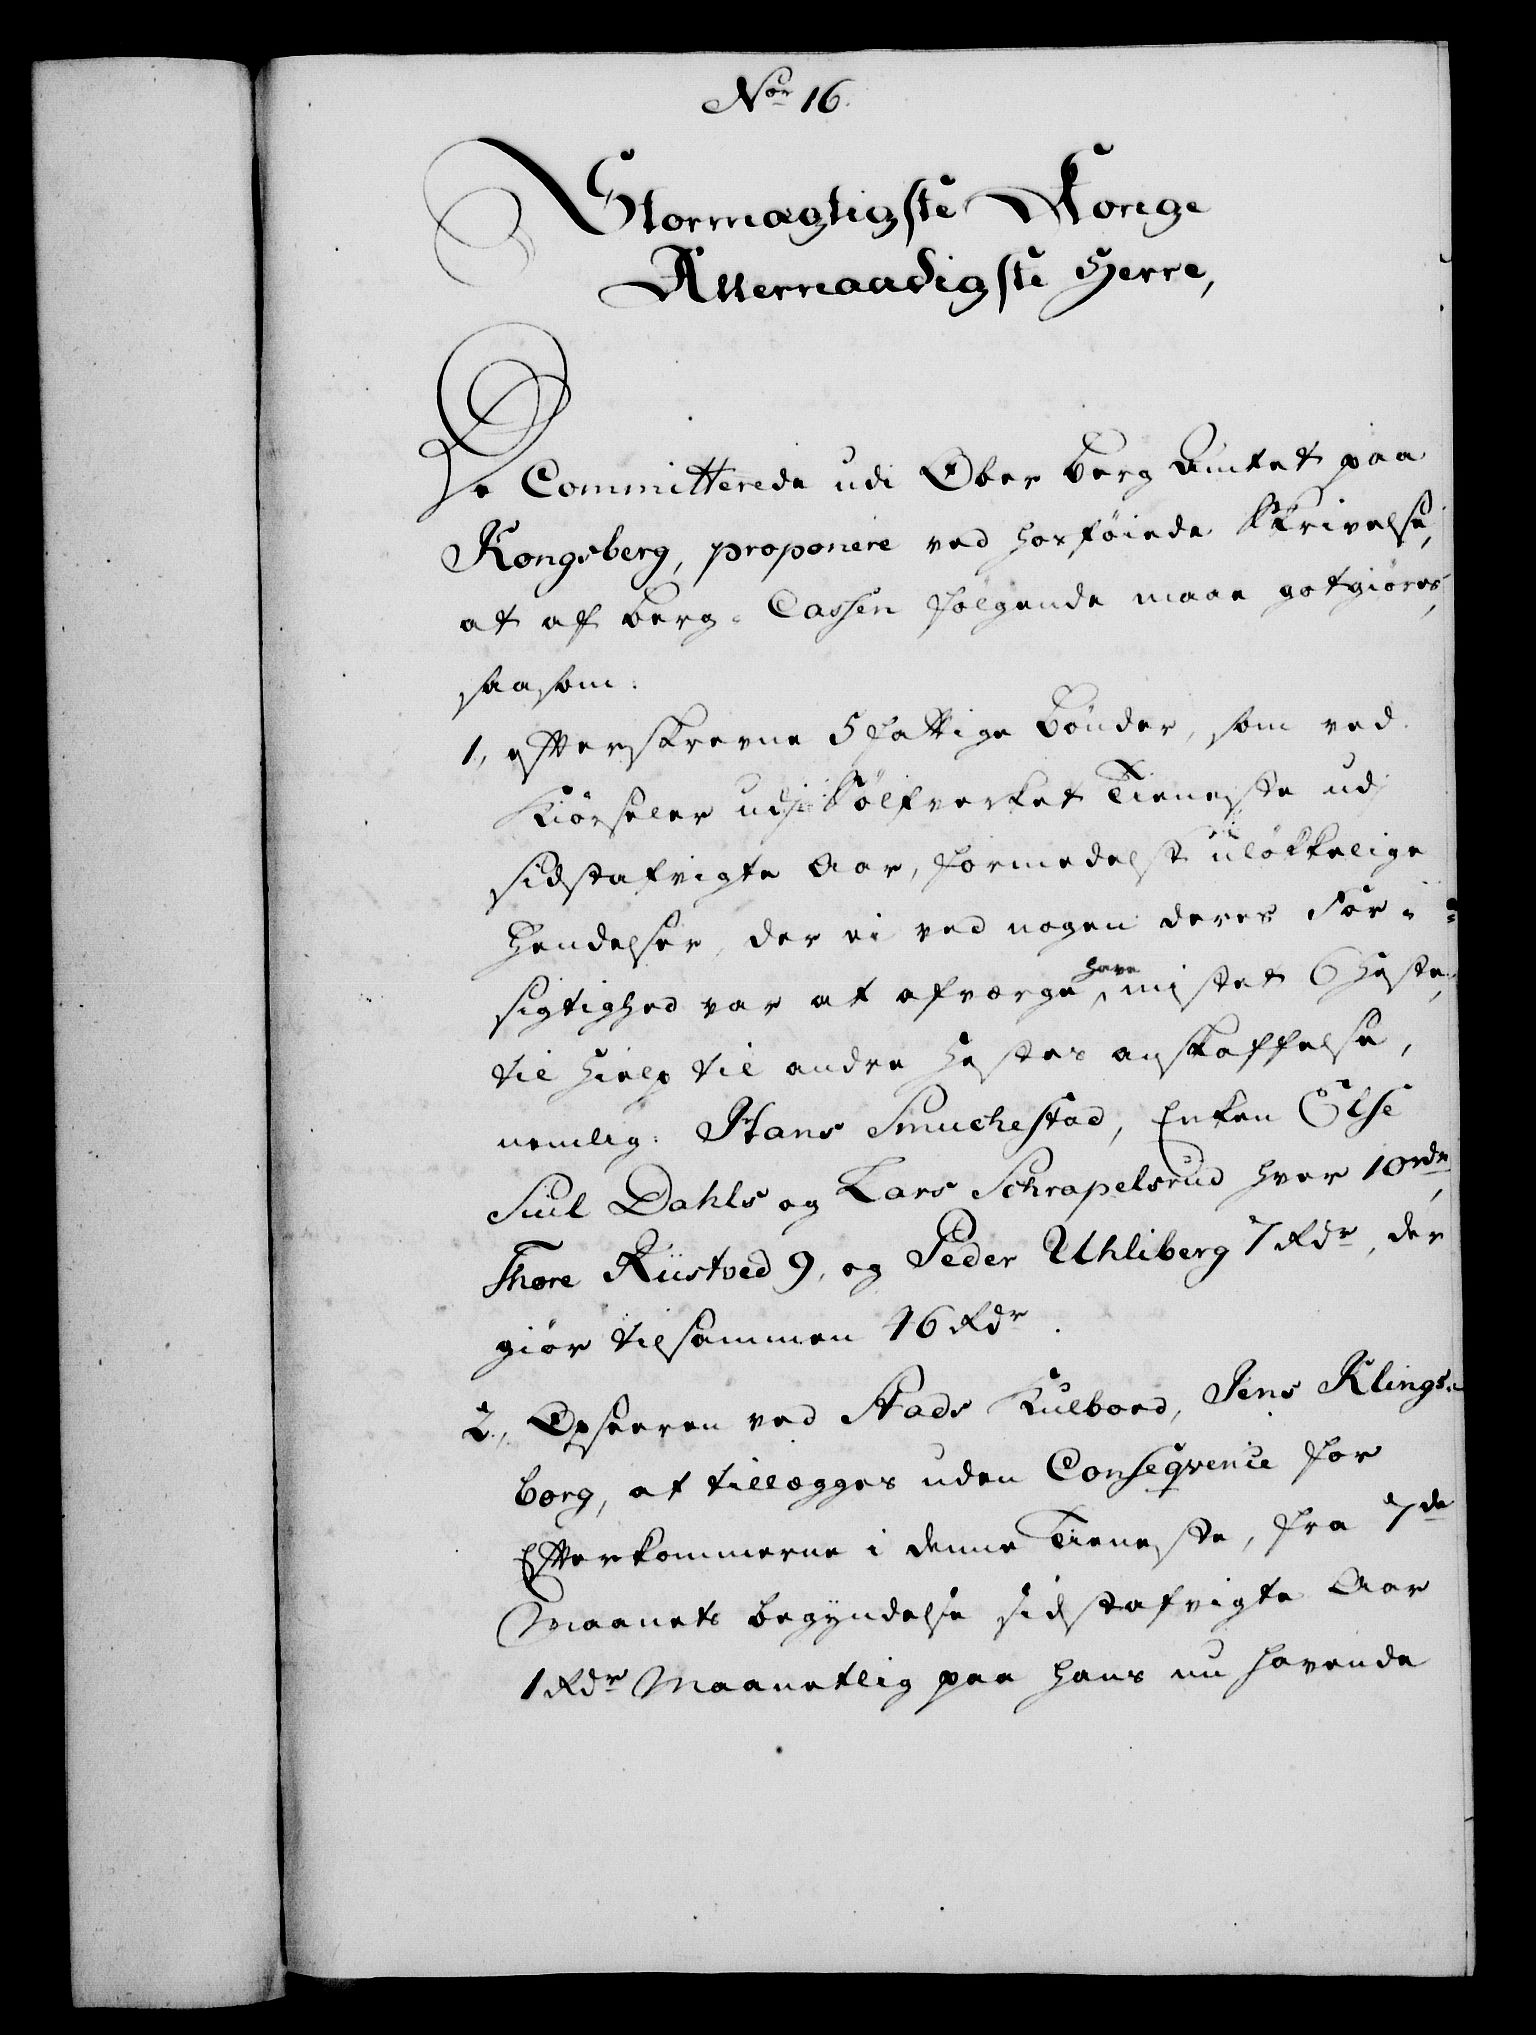 Nor 16.
Stormægtigste Konge
Allernaadigste Herre,
De Committerede udi Ober Berg Amtet paa
Kongsberg, proponere ved hosföiede Skrivelse,
at af Berg-Cassen følgende maae gotgiøres,
saasom:
1, efterskrevne 5 fattige Bönder, som ved
Kiörseler udj Sölfverket Tieneste udj
sidstafvigte Aar, formedelst ulökkelige
Hendelser, der ei ved nogen deres For-
sigtighed var at afværge, have mistet 6 Heste,
til Hielp til andre Hestes anskaffelse,
nemlig: Hans Smuchestad, Enken Else
Siul Dahls og Lars Schrapelsrud hver 10 rdr,
Thore Riistved 9, og Peder Uhliberg 7 Rdr, der
giør tilsammen 46 Rdr.
2, Opseeren ved Stads Kulboed, Jens Klings-
borg, at tillægges uden Conseqvence for
Efterkommerne i denne Tieneste, fra 7de
Maanets begyndelse sidstafvigte Aar
1 Rdr Maanetlig paa hans nu havende